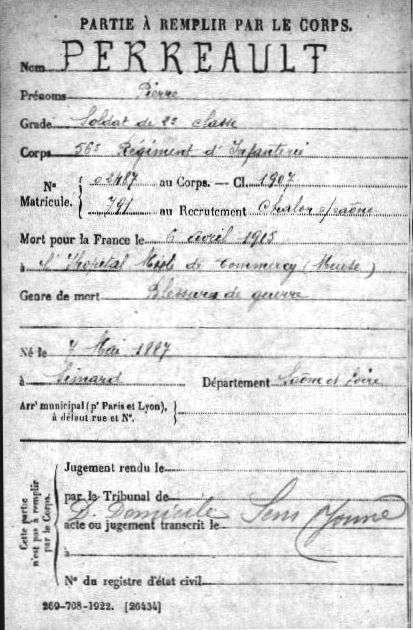 PARTIE À REMPLIR PAR LE CORPS.
Nom PERREAULT
Prénoms Pierre
Grade Soldat de 2e classe
Corps 56e Régiment d'Infanterie
N° 02487 au Corps. — Cl. 1907
Matricule. 791 au Recrutement Chalon s/saône
Mort pour la France le 6 avril 1915
à l'hopital Mixte de Commercy (Meuse)
Genre de mort Blessures de guerre
Né le 7 Mai 1887
à Simard Département Saône et Loire
Arrt municipal (pr Paris et Lyon),
à défaut rue et N°.
Cette partie
n'est pas à remplir
par le Corps.
Jugement rendu le
par le Tribunal de
D. Domicile Sens Yonne
acte ou jugement transcrit le
à
N° du registre d'état civil
269-708-1922. [26434]